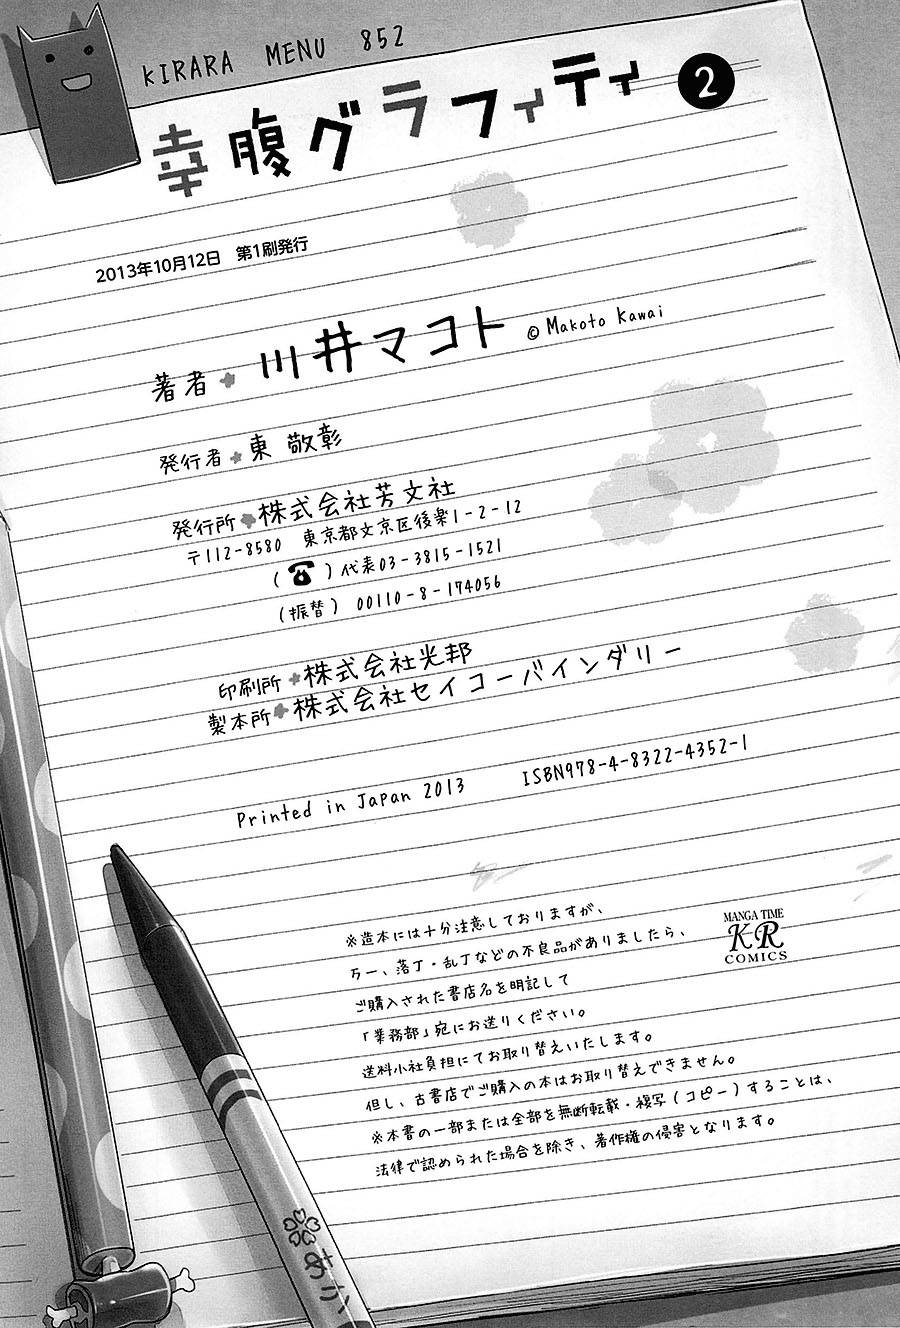 KIRARA MENU 852
幸腹グラフィティ 2
2013年10月12日 第1刷発行
著者 川井マコト © Makoto Kawai
発行者 東 敬彰
発行所 株式会社芳文社
〒112-8580 東京都文京区後楽1-2-12
(☎)代表03-3815-1521
(振替) 00110-8-174056
印刷所 株式会社光邦
製本所 株式会社セイコーバインダリー
Printed in Japan 2013 ISBN978-4-8322-4352-1
※造本には十分注意しておりますが、
万一、落丁・乱丁などの不良品がありましたら、
ご購入された書店名を明記して
「業務部」宛にお送りください。
送料小社負担にてお取り替えいたします。
但し、古書店でご購入の本はお取り替えできません。
※本書の一部または全部を無断転載・複写(コピー)することは、
法律で認められた場合を除き、著作権の侵害となります。
MANGA TIME
KR
COMICS
あか